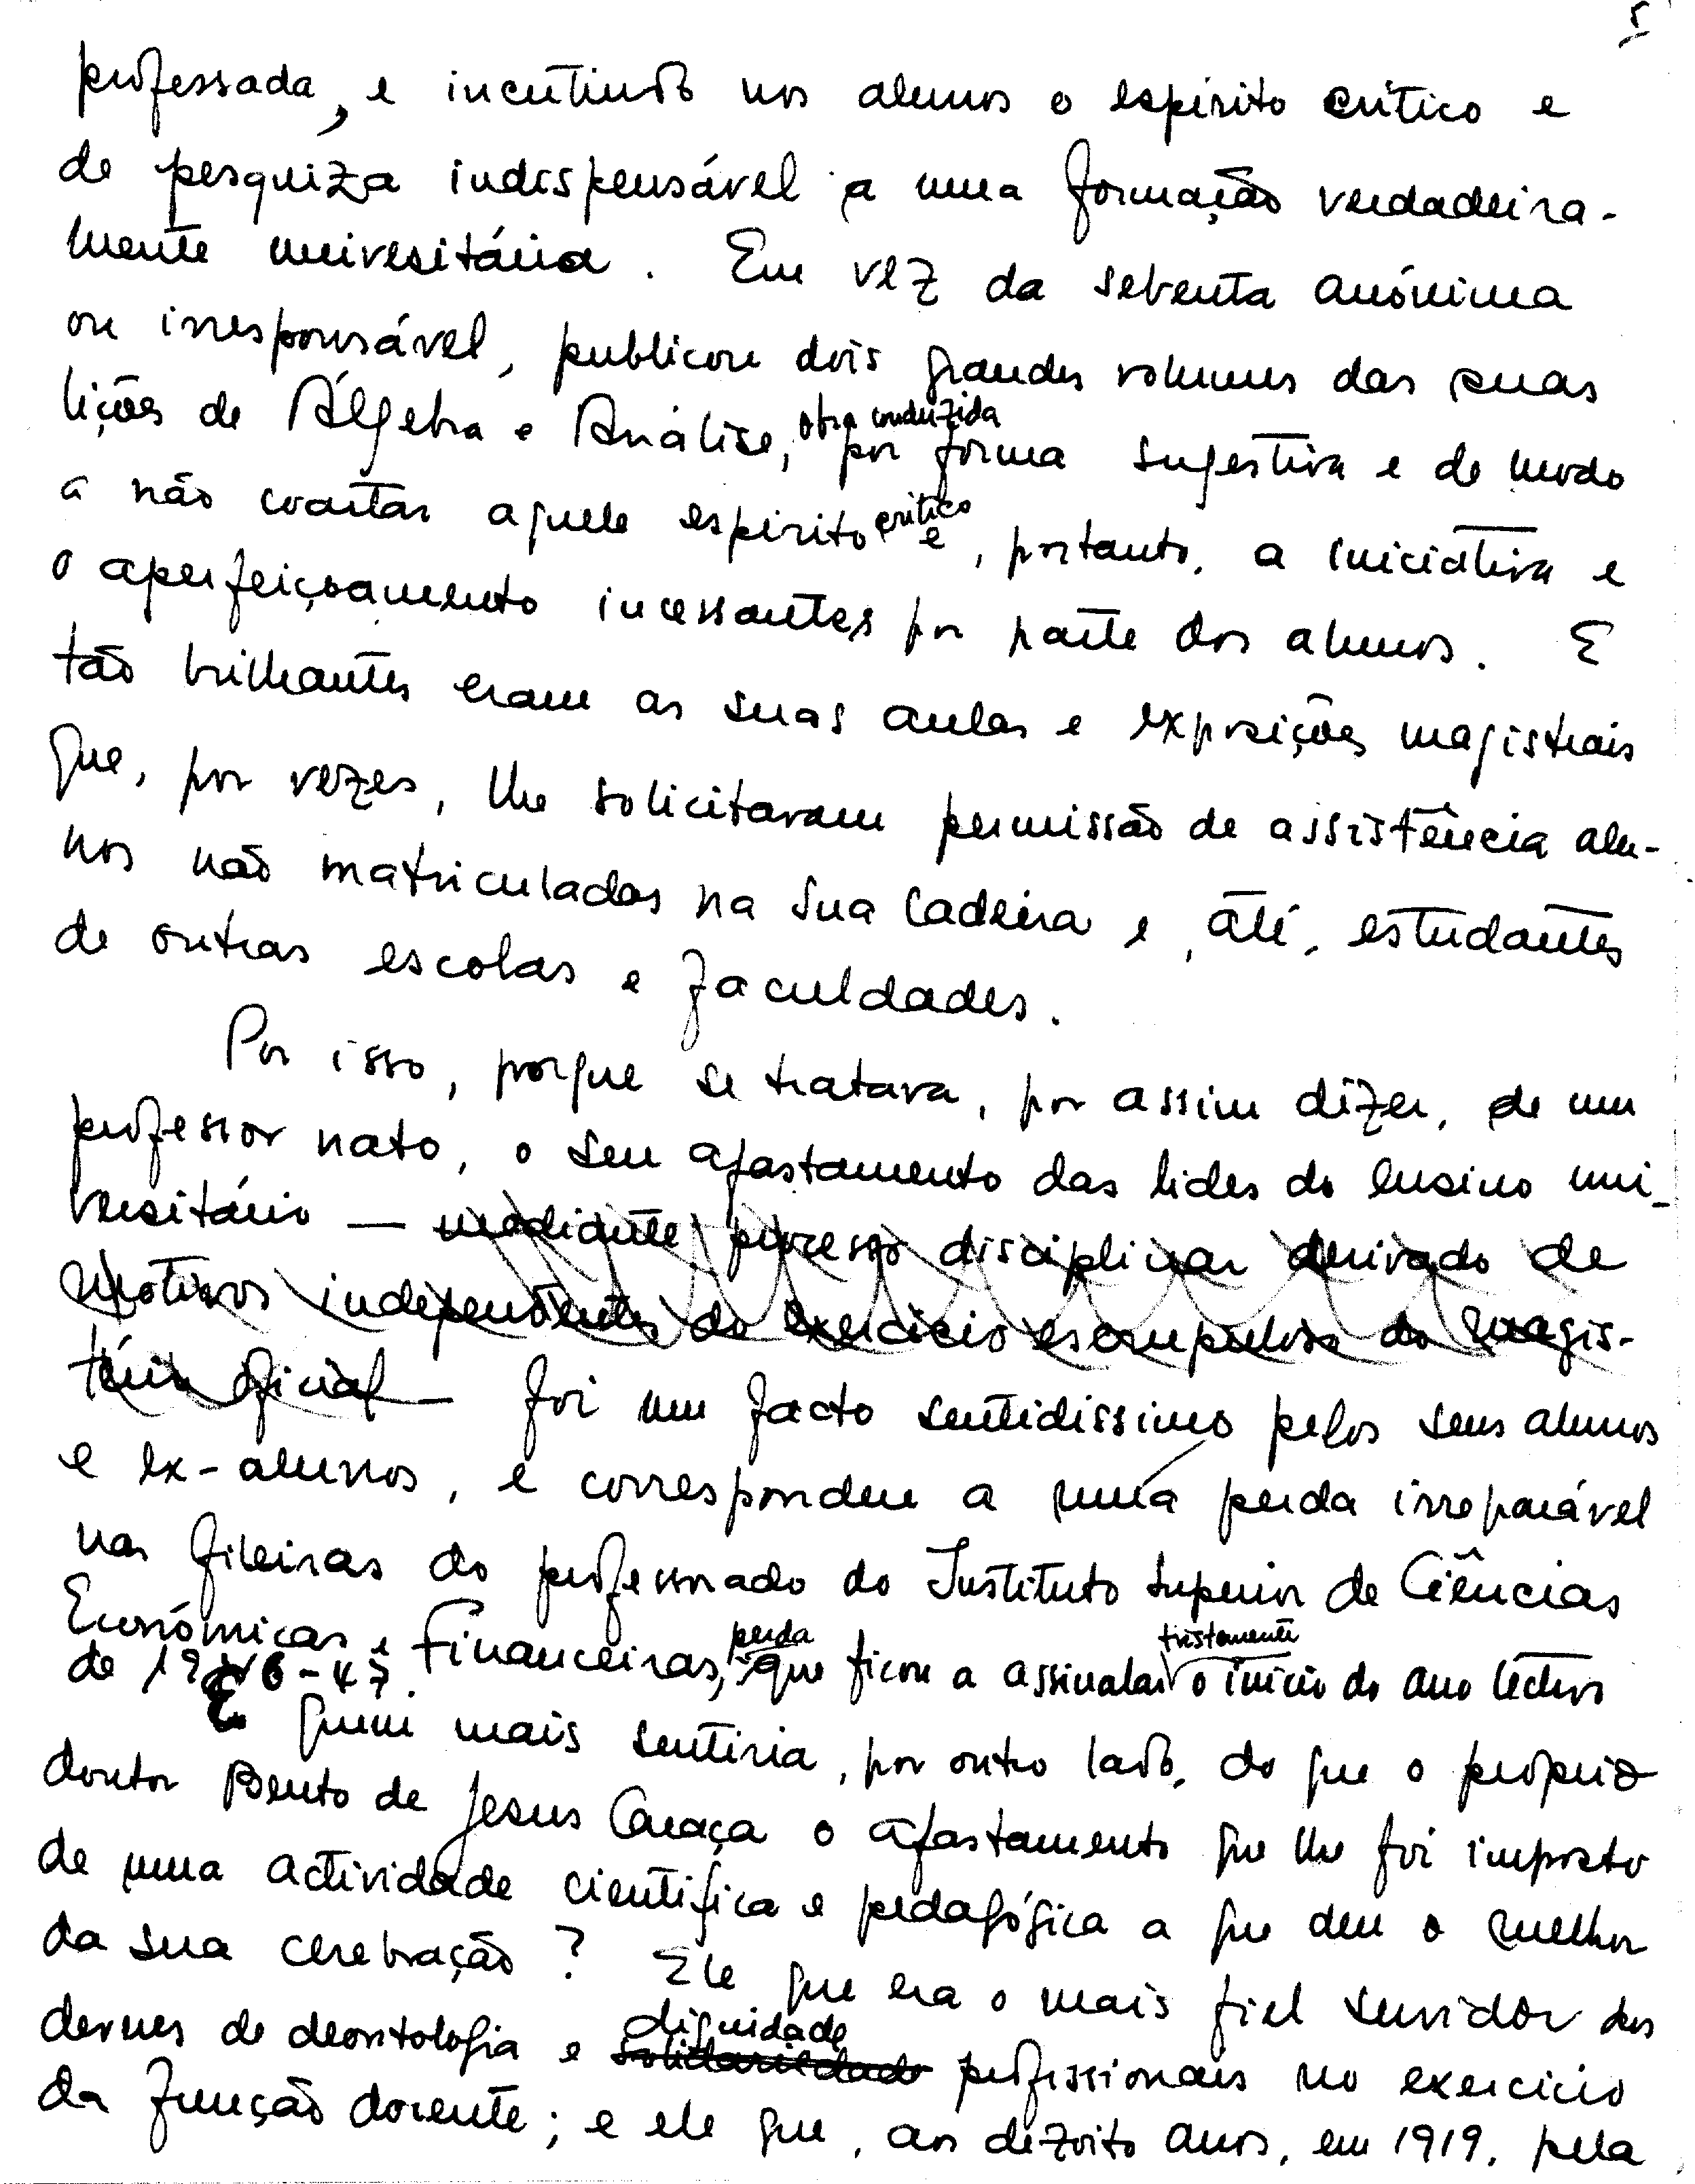 5
professada, e incutindo nos alunos o espírito crítico e
de pesquiza indispensável a uma formação verdadeira-
mente univesitária. Em vez da sebenta anónima
ou irresponsável, publicou dois grandes volumes das suas
lições de Álgebra e Análise, obra conduzida por forma sugestiva e de modo
a não coartar aquele espírito crítico e, portanto, a iniciativa e
o aperfeiçoamento incessantes por parte dos alunos. E
tão brilhantes eram as suas aulas e exposições magistrais
que, por vezes, lhe solicitavam permissão de assistência alu-
nos não matriculados na sua cadeira e, até, estudantes
de outras escolas e faculdades.
Por isso, porque se tratava, por assim dizer, de um
professor nato, o seu afastamento das lides do ensino uni-
versitário — mediante processo disciplinar derivado de
motivos independentes do exercício escrupuloso do magis-
tério oficial — foi um facto sentidissimo pelos seus alunos
e ex-alunos, e correspondeu a uma perda irreparável
nas fileiras do professorado do Instituto Superior de Ciências
Económicas e Financeiras, perda que ficou a assinalar tristemente o início do ano lectivo
de 1946-47.
E quem mais sentiria, por outro lado, do que o próprio
doutor Bento de Jesus Caraça o afastamento que lhe foi imposto
de uma actividade científica e pedagógica a que deu o melhor
da sua cerebração? Ele que era o mais fiel servidor dos
deveres de deontologia e solidariedade dignidade profissionais no exercício
da função docente; e ele que, aos dezoito anos, em 1919, pela